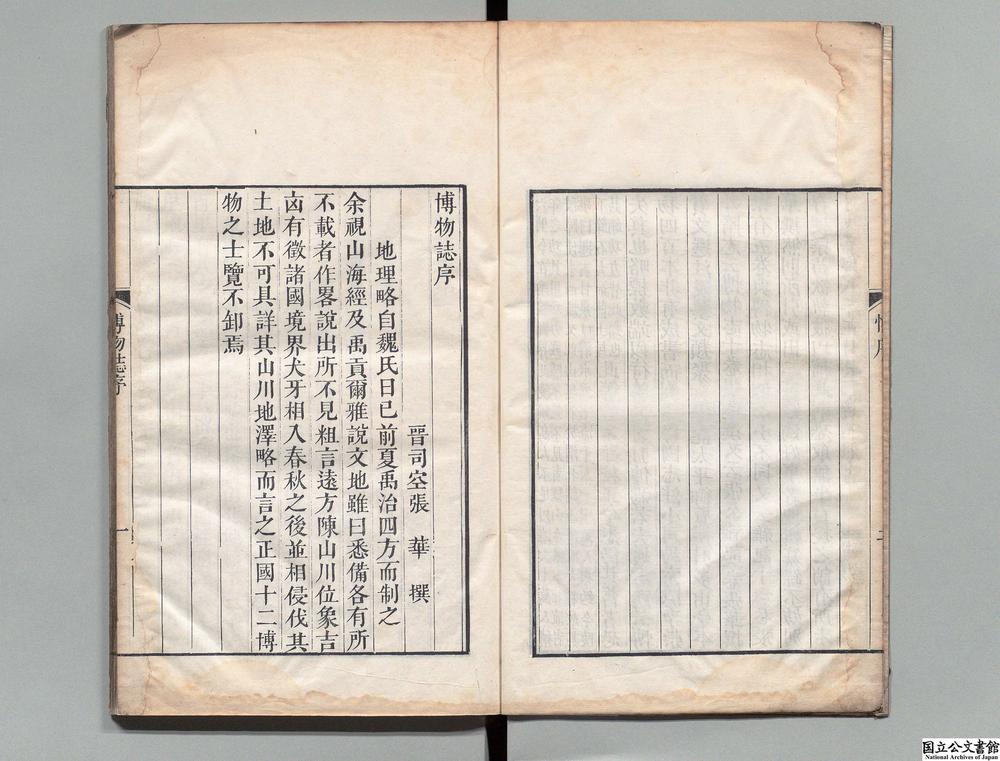 博物誌序
晉司空張華撰
地理略自魏氏日已前夏禹治四方而制之
余視山海經及禹貢爾雅說文地雖曰悉備各有所
不載者作畧說出所不見粗言遠方陳山川位象吉
凶有徵諸國境界犬牙相入春秋之後並相侵伐其
土地不可具詳其山川地澤略而言之正國十二博
物之士覽不卸焉
博物誌序
一
国立公文書館
National Archives of Japan